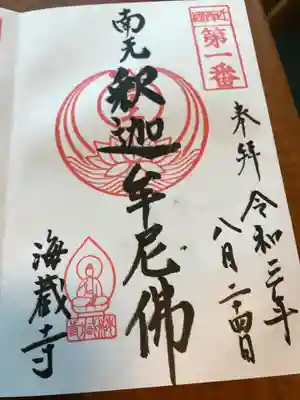 第一番
奉拝 令和三年
八月二十四日
南无
釈迦牟尼佛
海蔵寺